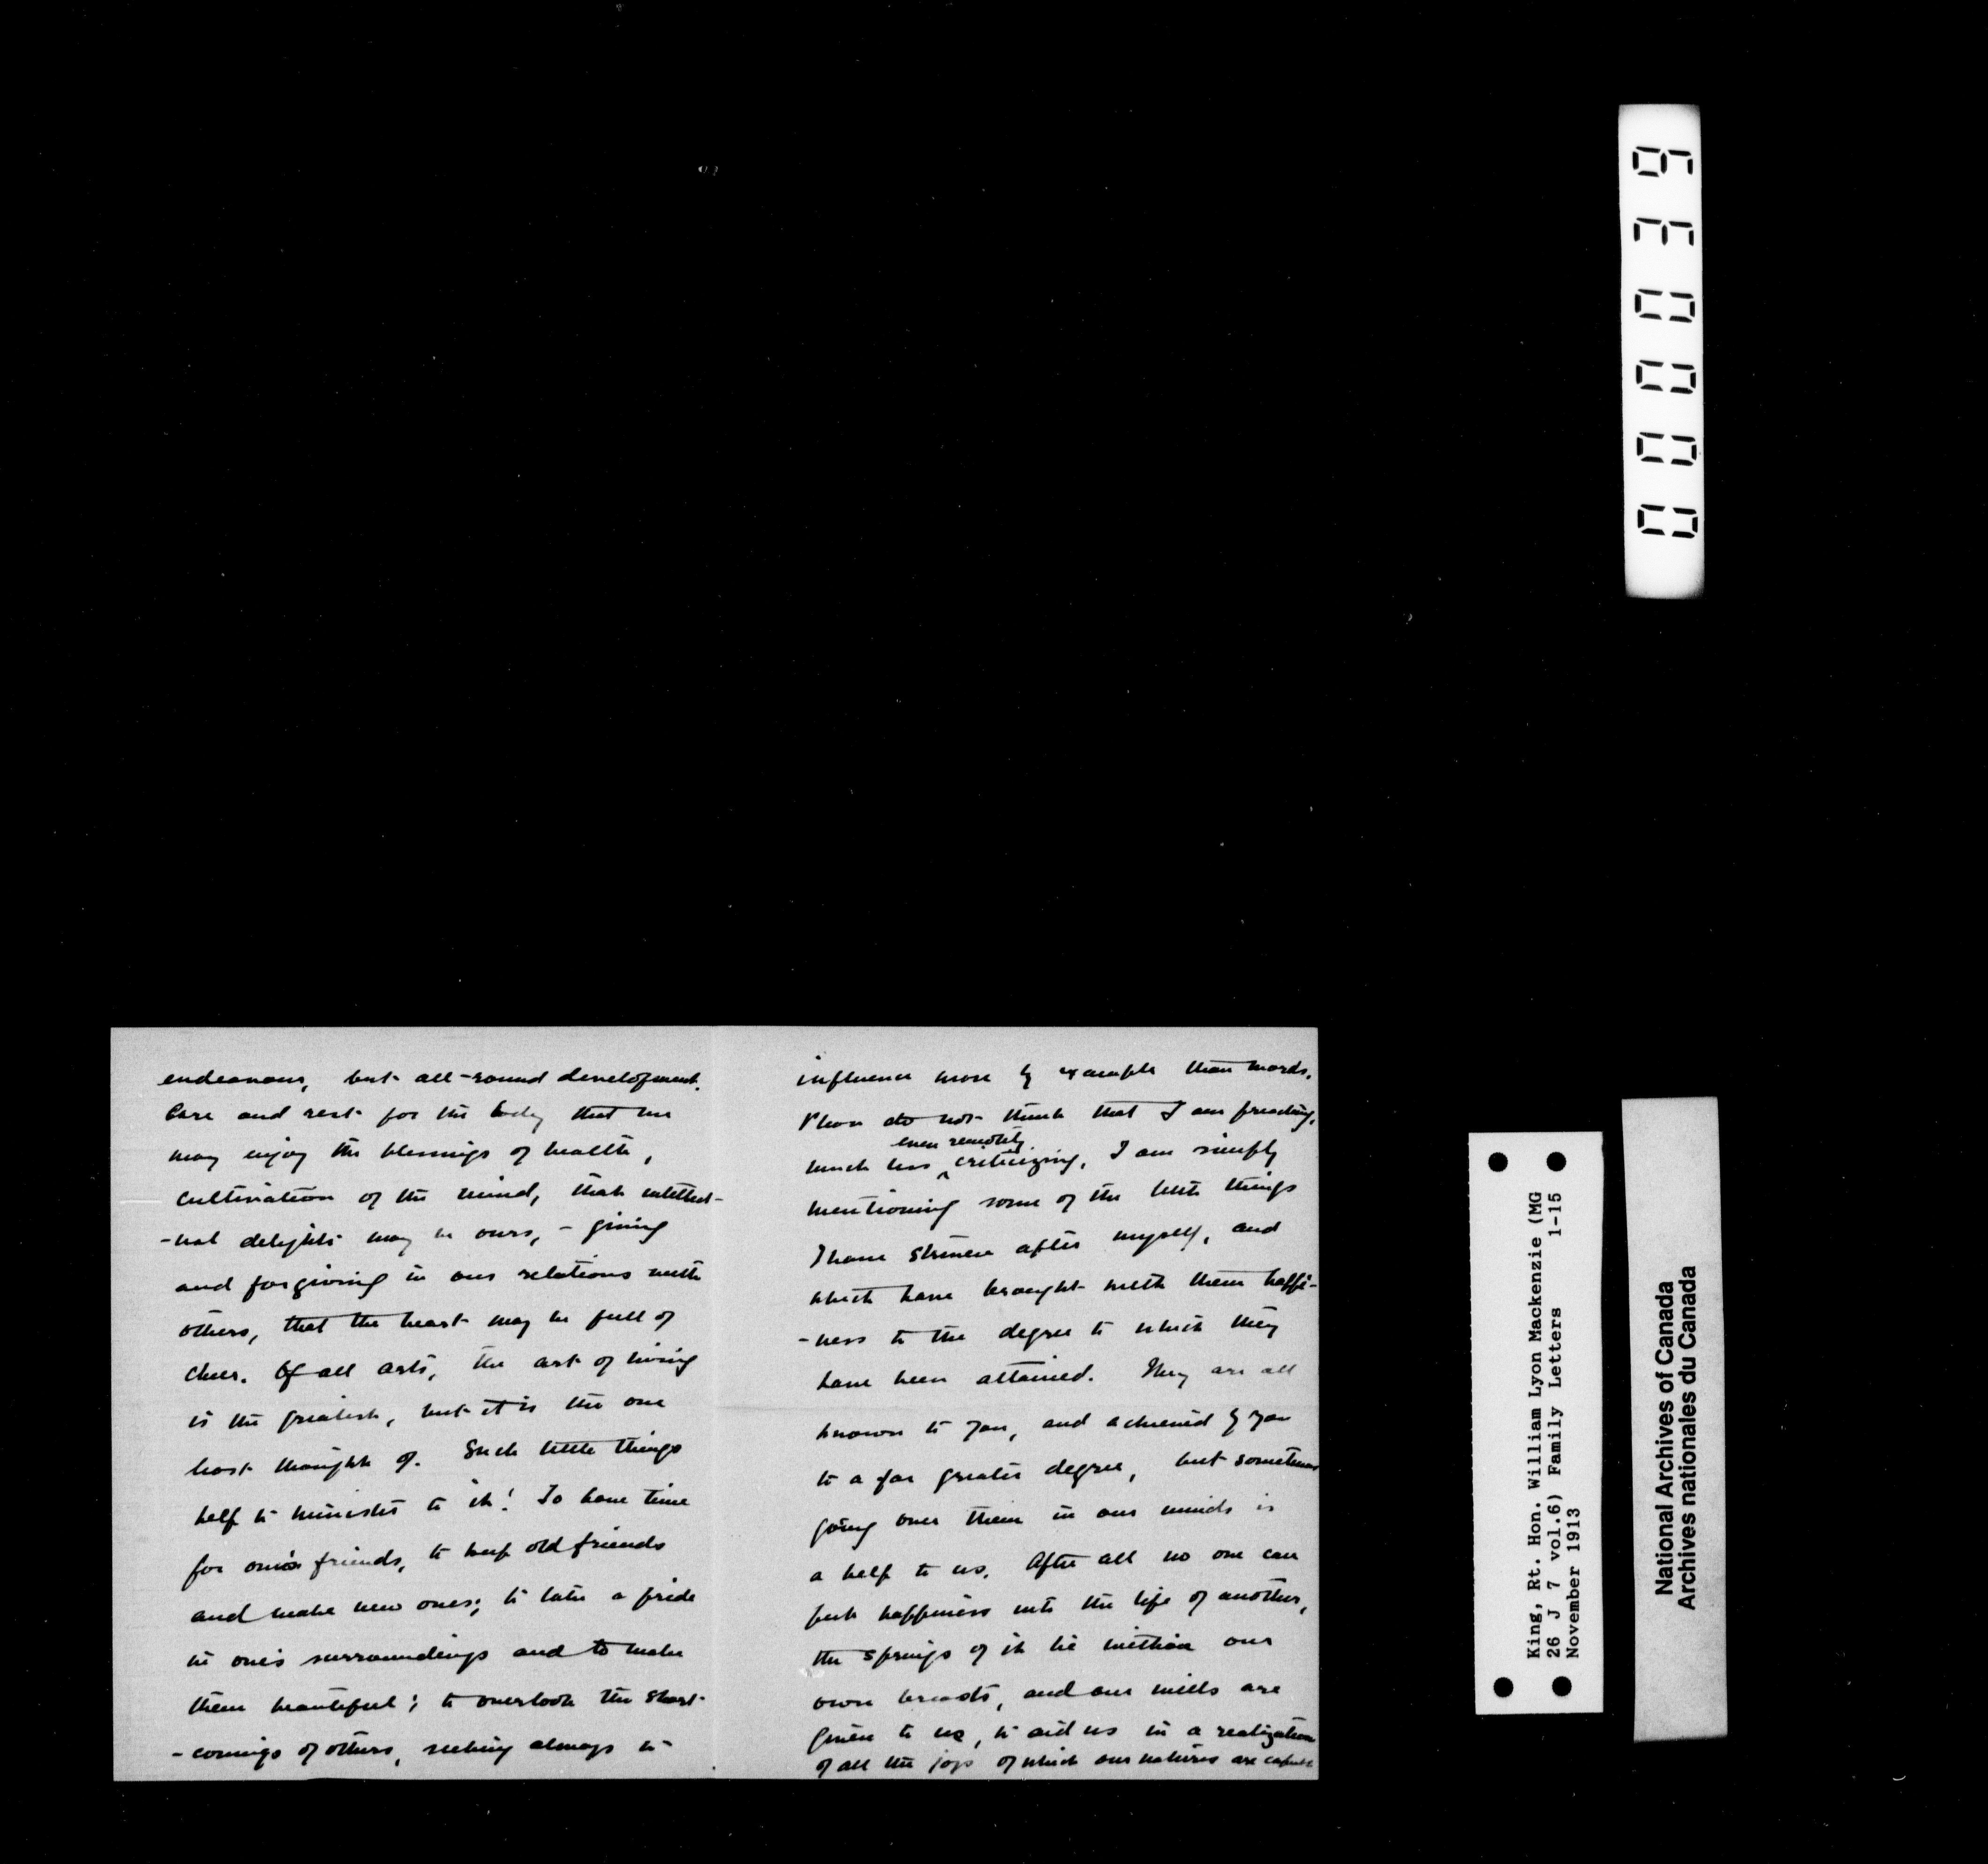 endeavour, but all-round development.
Care and rest for the body that we
may enjoy the blessings of health,
cultivation of the mind, that intellect-
-ual delights may be ours, - giving
and forgiving in our relations with
others, that the heart may be full of
cheer. Of all arts, the art of living
is the greatest, but it is the one
least thought of. Such little things
help to minister to it! To have time
for one's friends, to keep old friends
and make new ones; to take a pride
in one's surroundings and to make
them beautiful; to overlook the short-
-comings of others, seeking always to
influence more by example than words.
Please do not think that I am preaching,
even remotely
much less ^ criticizing, I am simply
mentioning some of the little things
I have striven after myself, and
which have brought with them happi-
-ness to the degree to which they
have been attained. They are all
known to you, and achieved by you
to a far greater degree, but sometimes
going over them in our minds is
a help to us. After all no one can
put happiness into the life of another,
the springs of it lie within our
own breasts, and our wills are
given to us, to aid us in a realization
of all the joys of which our natures are capable
King, Rt. Hon. William Lyon Mackenzie (MG
26 J 7 vol.6) Family Letters 1-15
November 1913
National Archives of Canada
Archives nationales du Canada